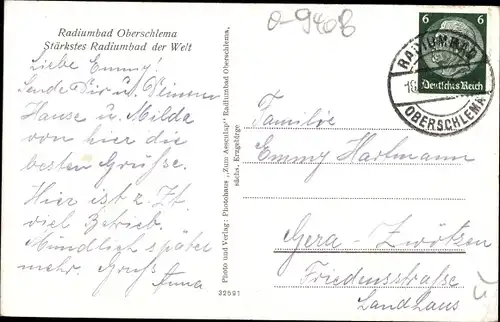 Radiumbad Oberschlema
Stärkstes Radiumbad der Welt
Liebe Emmy!
Sende Dir u. Deinem
Hause u. Milda
von hier die
besten Grüsse.
Hier ist z. Zt.
viel Betrieb.
Mündlich später
mehr. Gruß
Anna
Photo und Verlag: Photohaus „Zum Assentap" Radiumbad Oberschlema,
sächs. Erzgebirge
32591
0-9408
6 6
Deutsches Reich
RADIUMBAD
OBERSCHLEMA
Familie
Emmy Hartmann
Gera-Zwötzen
Friedensstraße
Landhaus